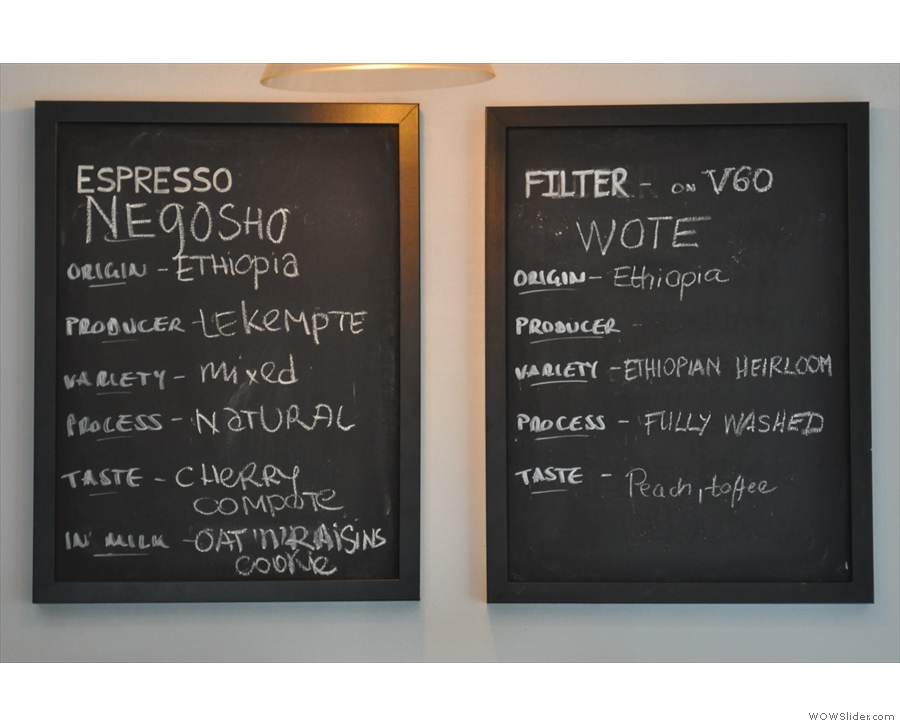 ESPRESSO
NEGOSHO
ORIGIN - ETHiopia
PRODUCER - LEKEMPTE
VARIETY - mixed
PROCESS - NATURAL
TASTE - CHERRY
COMPOTE
IN MILK - OAT'N'RAiSiNS
COOKiE
FILTER - ON V60
WOTE
ORIGIN - Ethiopia
PRODUCER -
VARIETY - ETHIOPIAN HEIRLOOM
PROCESS - FULLY WASHED
TASTE - Peach, toffee
WOWSlider.com